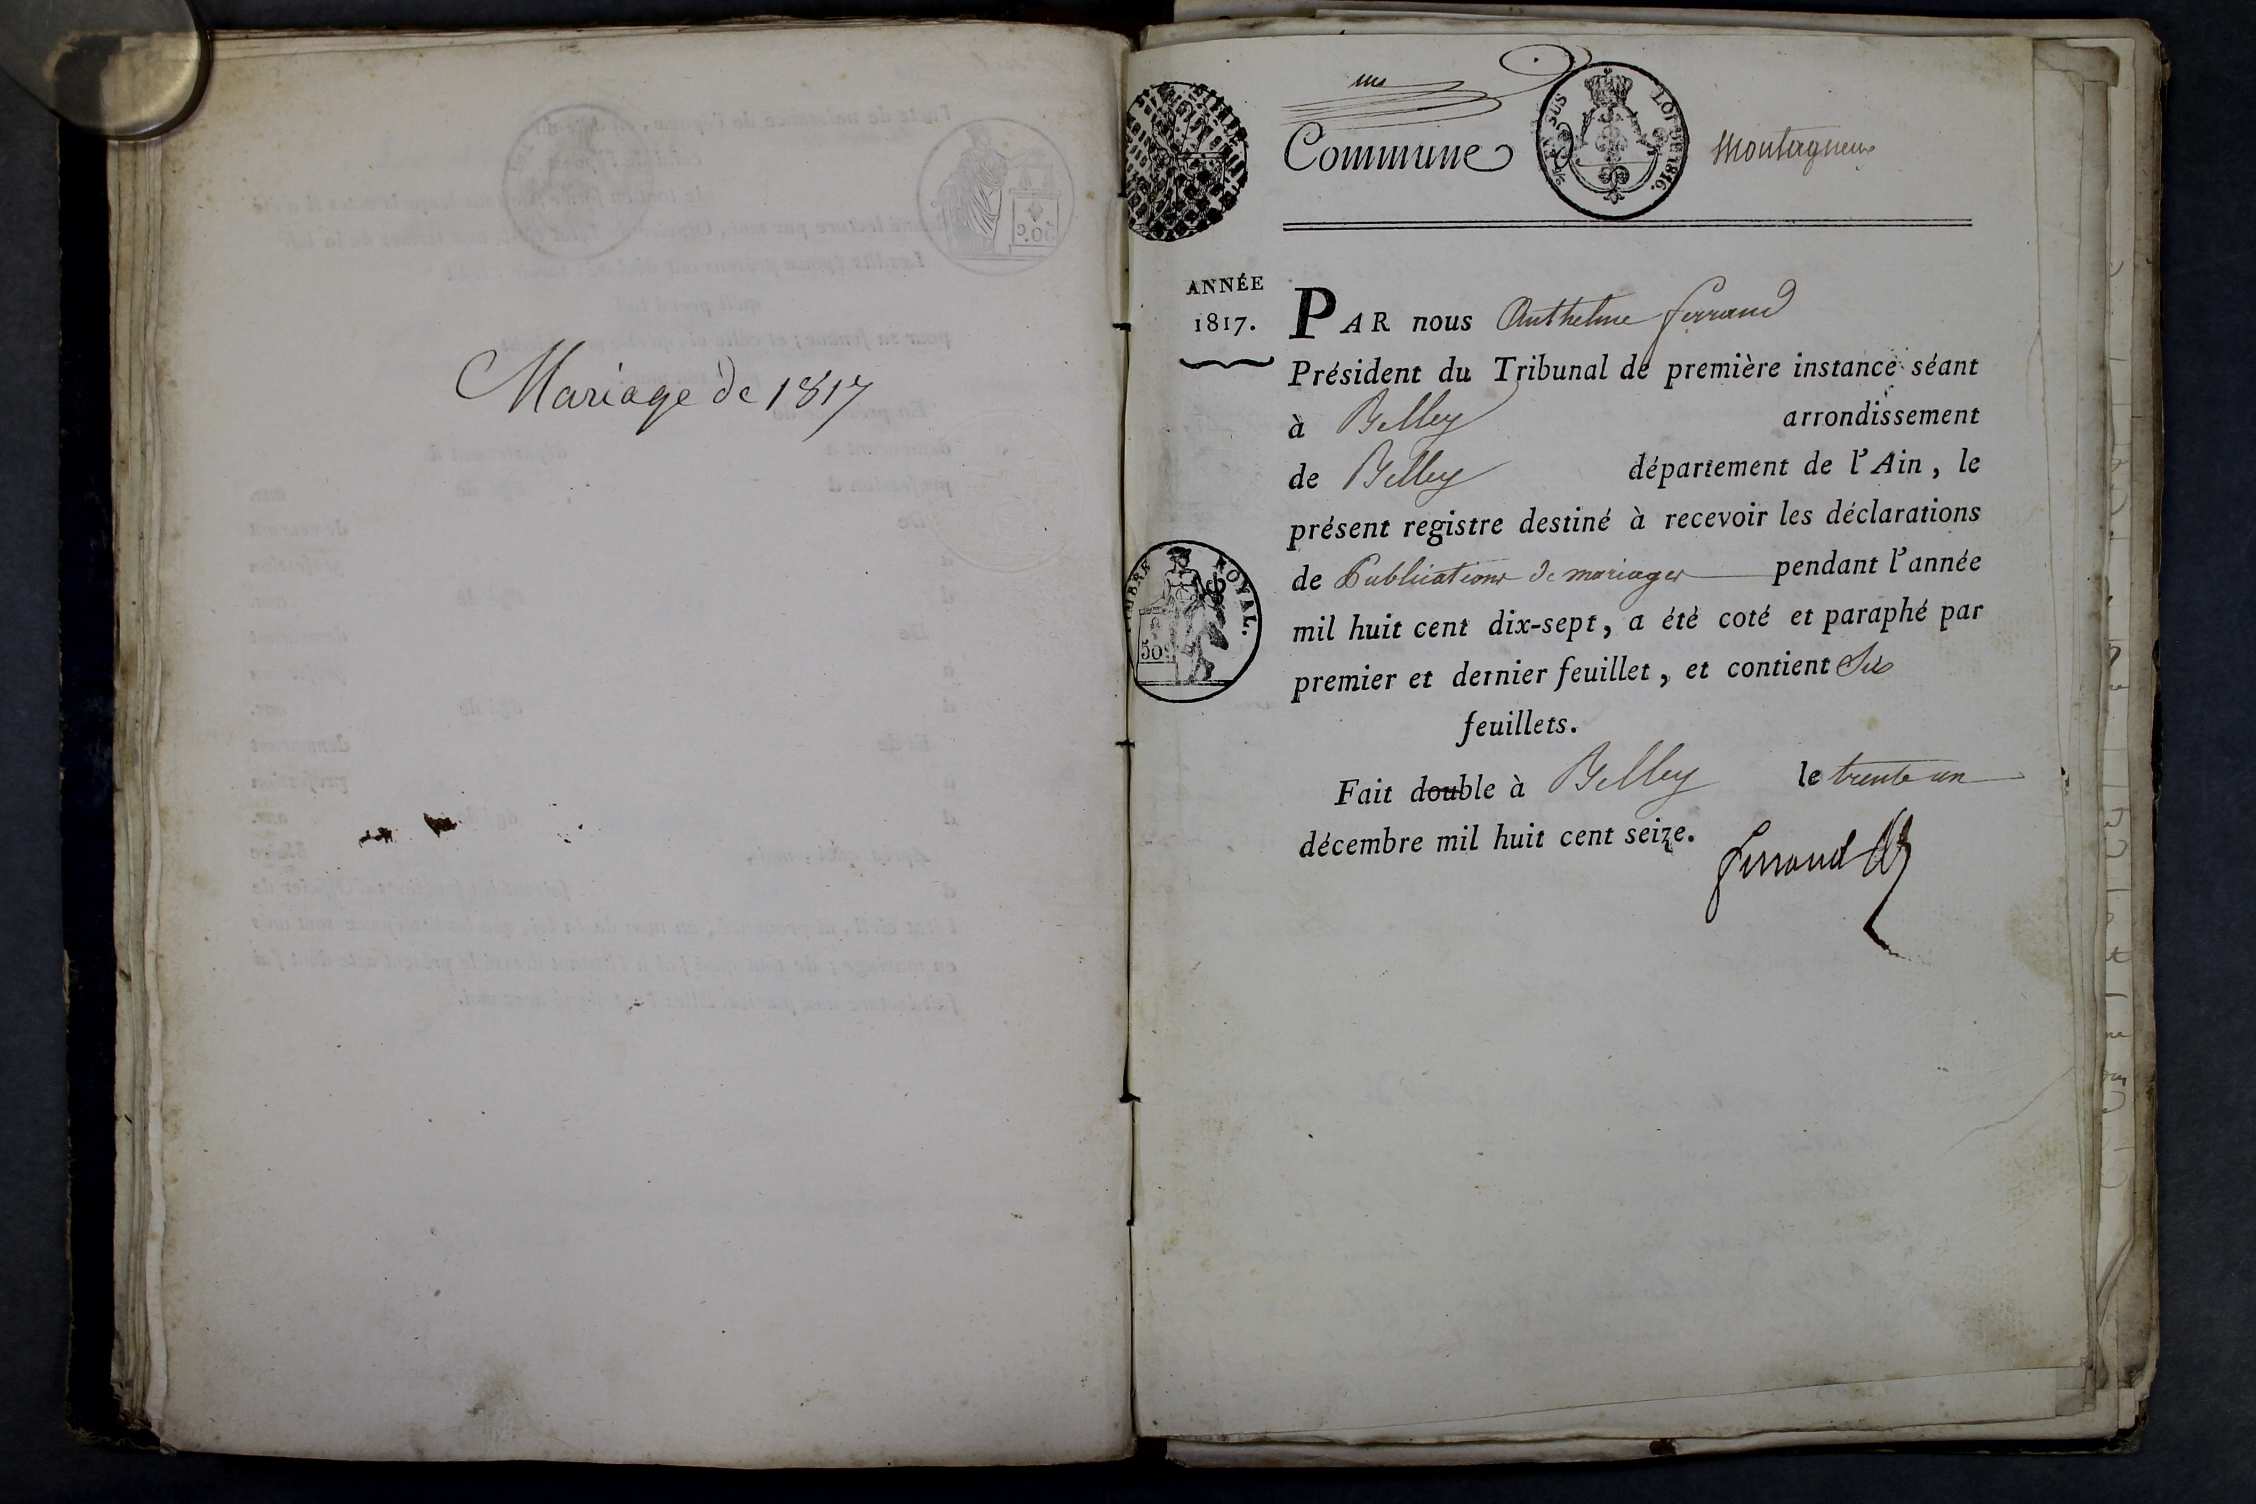 Mariage de 1817
un
Commune
EN SUS
LOI DE 1816.
Montagneux
ANNÉE
1817.
PAR nous Anthelme ferrand
Président du Tribunal de première instance séant
à Belley arrondissement
de Belley département de l'Ain, le
présent registre destiné à recevoir les déclarations
de Publications de mariages pendant l'année
mil huit cent dix-sept, a été coté et paraphé par
premier et dernier feuillet, et contient Six
feuillets.
TIMBRE ROYAL.
50
Fait double à Belley le trente un
décembre mil huit cent seize.
ferrand